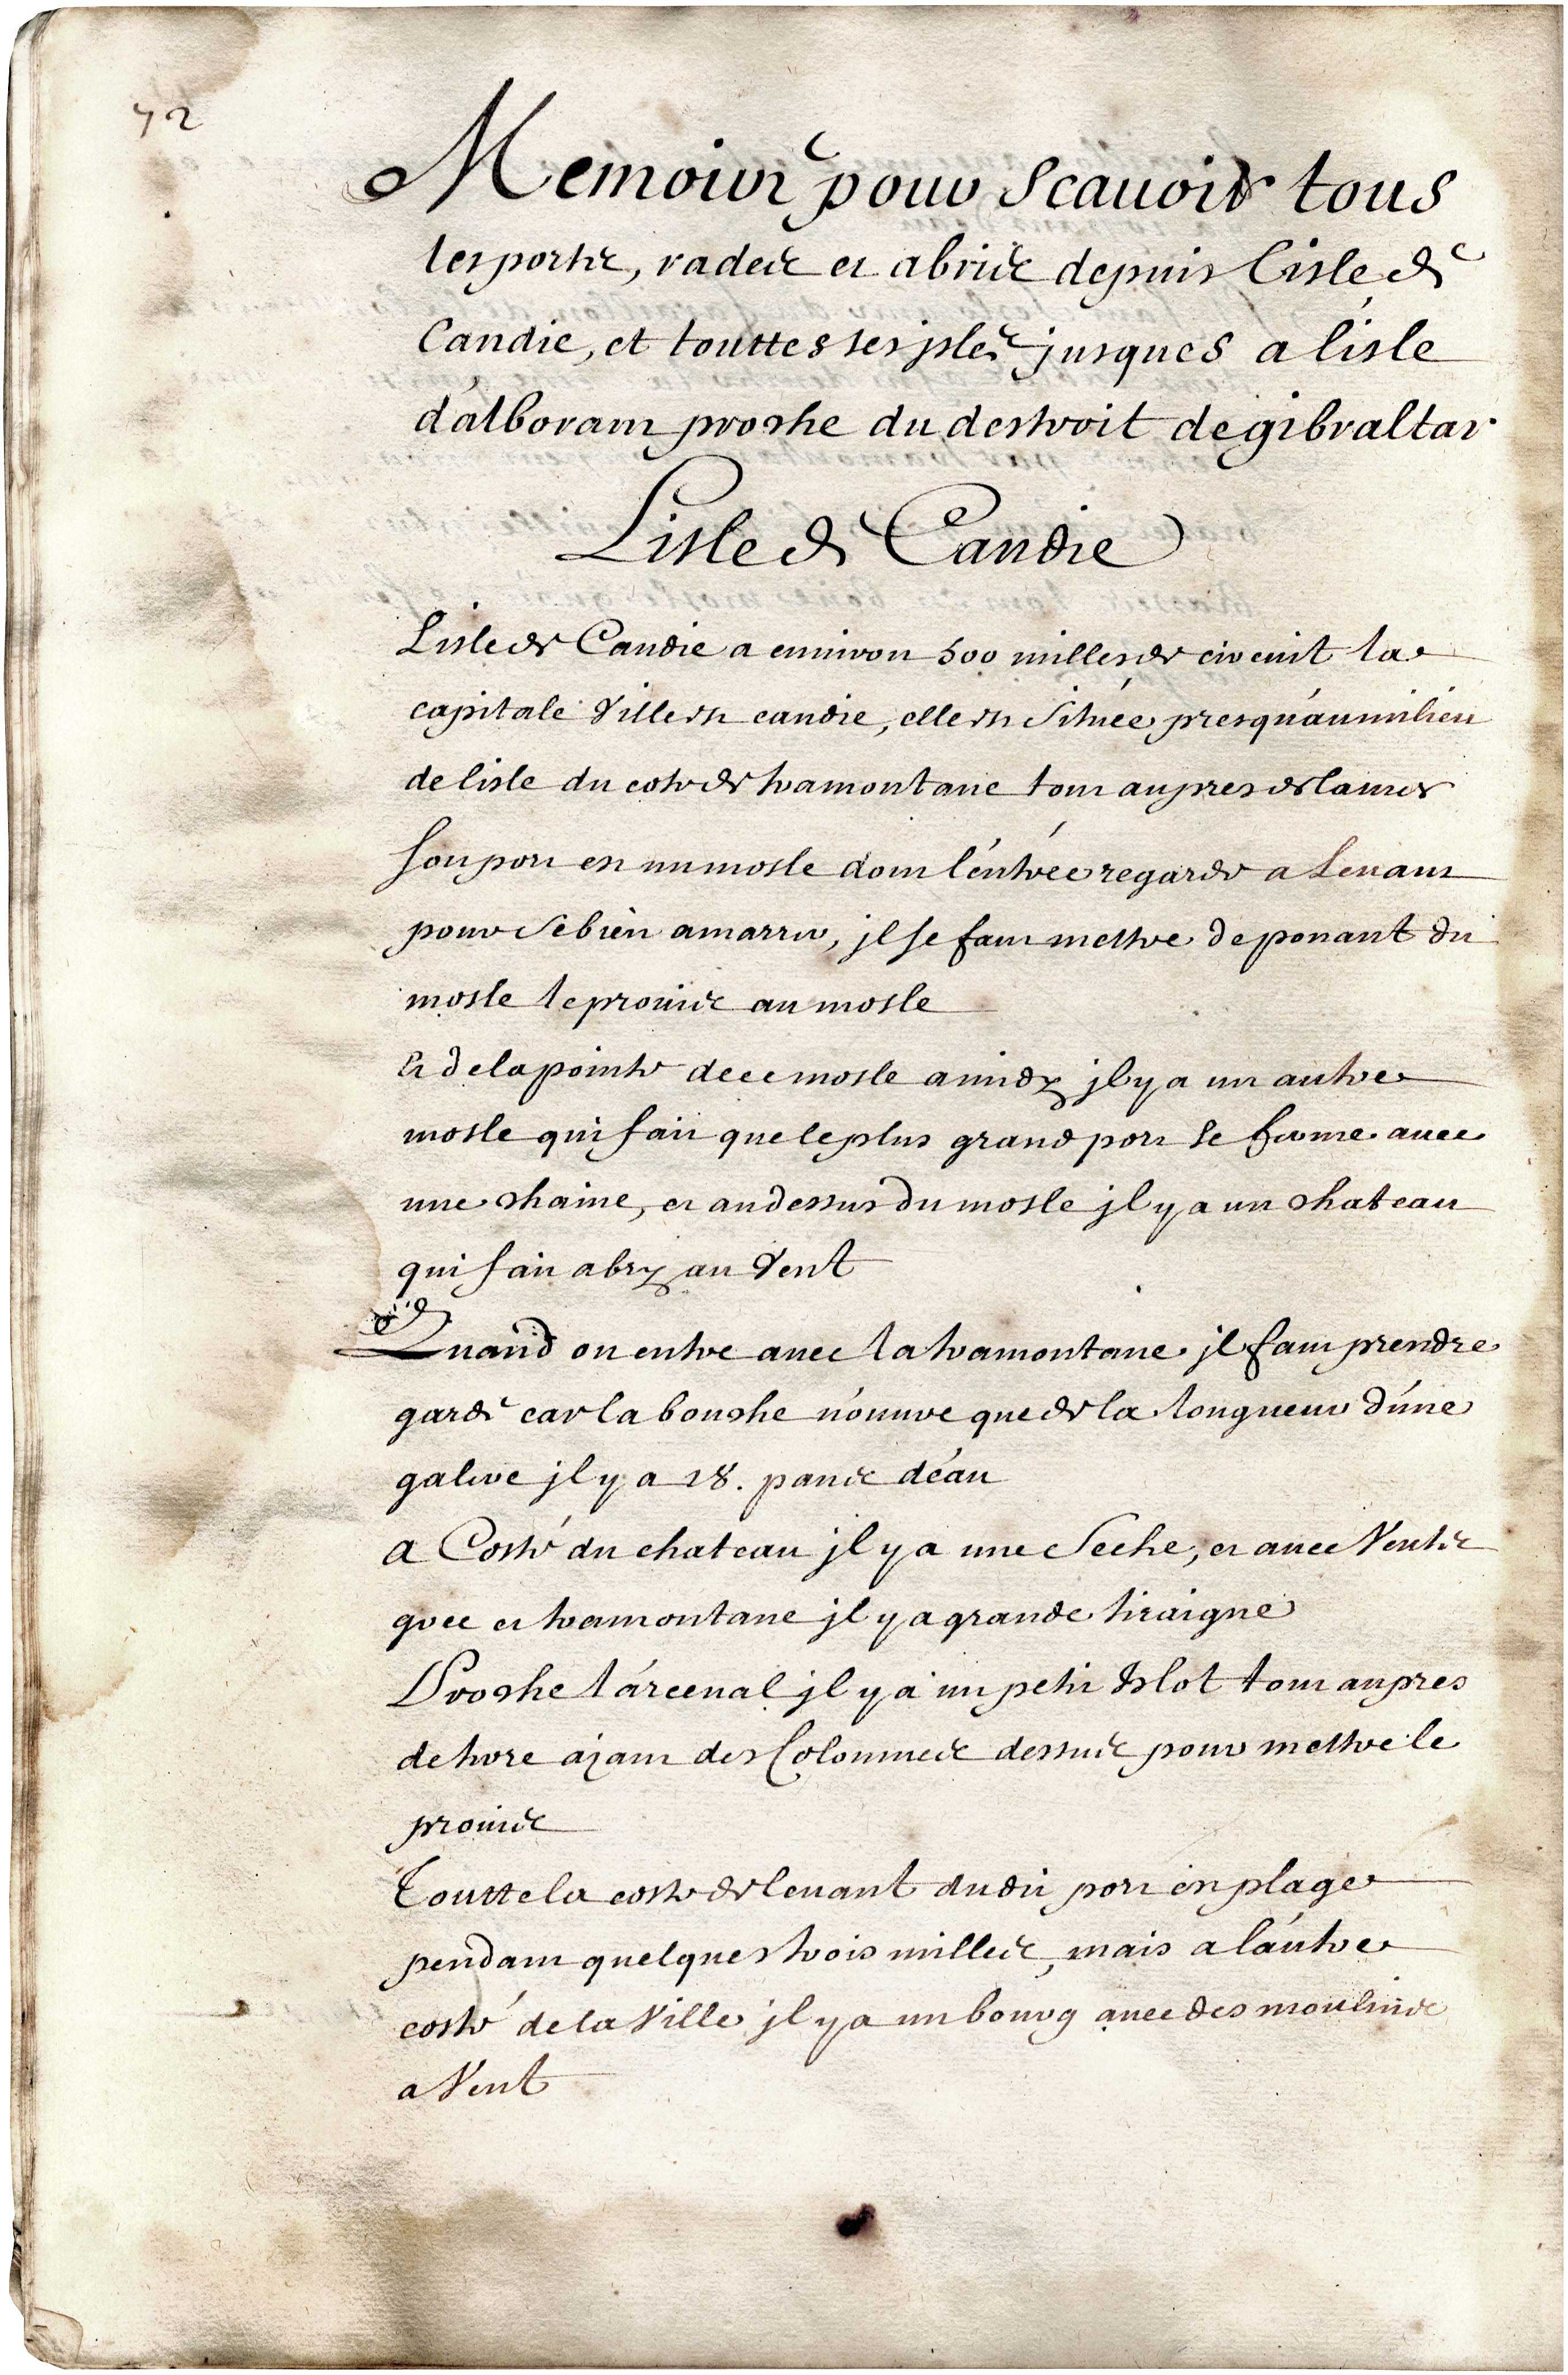 72
Memoire pour Scauoir tous
les ports, rades et abris depuis l'isle de
Candie, et touttes ses jsles jusques a l'isle
d'alboram proche du destroit de gibraltar
L'isle de Candie
L'isle de Candie a enuiron 500 milles de circuit la
capitale Ville est candie, elle est Située presqu'au milieu
de l'isle du coté de tramontane tout aupres de la mer
Son port est un mosle dont l'entrée regarde a Leuant
pour se bien amarrer, jl se faut mettre de ponant du
mosle le prouis au mosle
Et de la pointe de ce mosle a midy jl y a un autre
mosle qui fait que le plus grand port se ferme auec
une chaine, et au dessus du mosle jl y a un chateau
qui fait abry au Vent
Quand on entre auec la tramontane jl faut prendre
garde car la bouche n'ouure que de la longueur d'une
galere jl y a 18. pans d'eau
a Costé du chateau jl y a une Seche, et auec Vents
grec et tramontane jl y a grande tiraigne
Proche l'arcenal jl y a un petit Islot tout aupres
de terre ayant des Colonnes dessus pour mettre le
prouis
Toutte la coste de leuant dudit port est plage
pendant quelques trois milles, mais a l'autre
costé de la Ville jl y a un bourg auec des moulins
a Vent